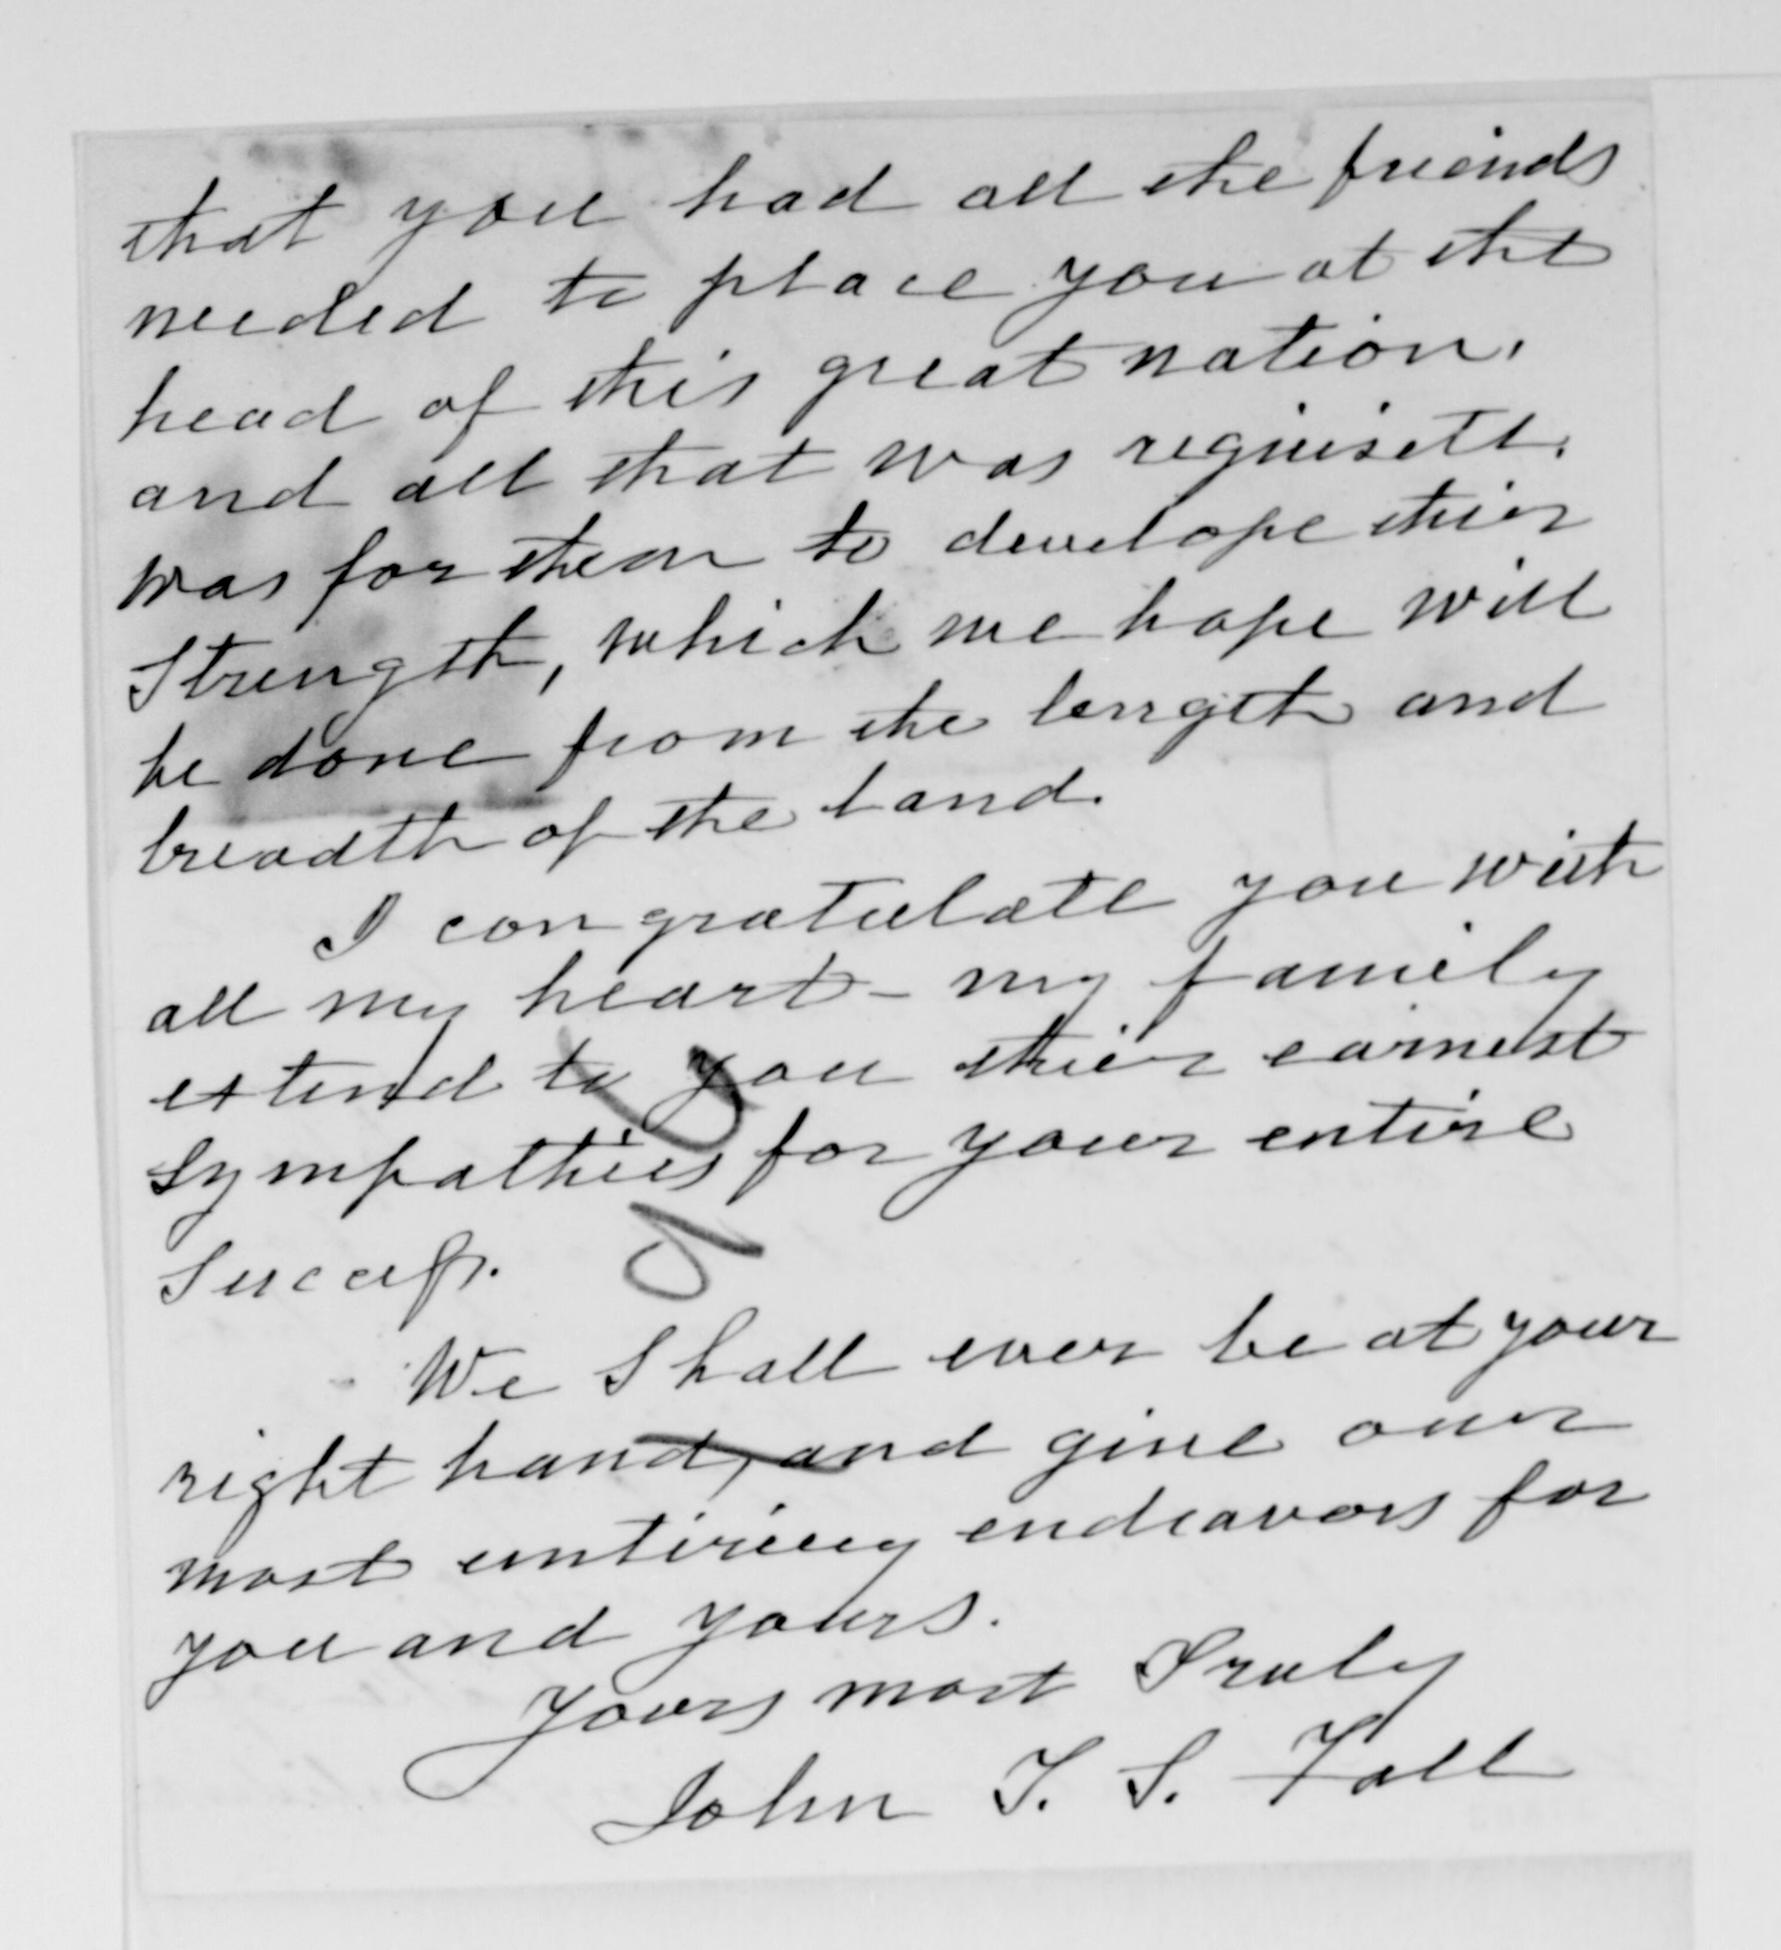 that you had all the friends
needed to place you at the
head of this great nation.
and all that was requisett.
was for them to develope thier
Strength, which we hope will
be done from the length and
breadth of the land.
I congratulate you with
all my heart - my family
extend to you thier earnest
Sympathies for your entire
Success.
We Shall ever be at your
right hand, and give our
most untiring endeavors for
you and yours.
Yours most Truly
John T. S. Fall